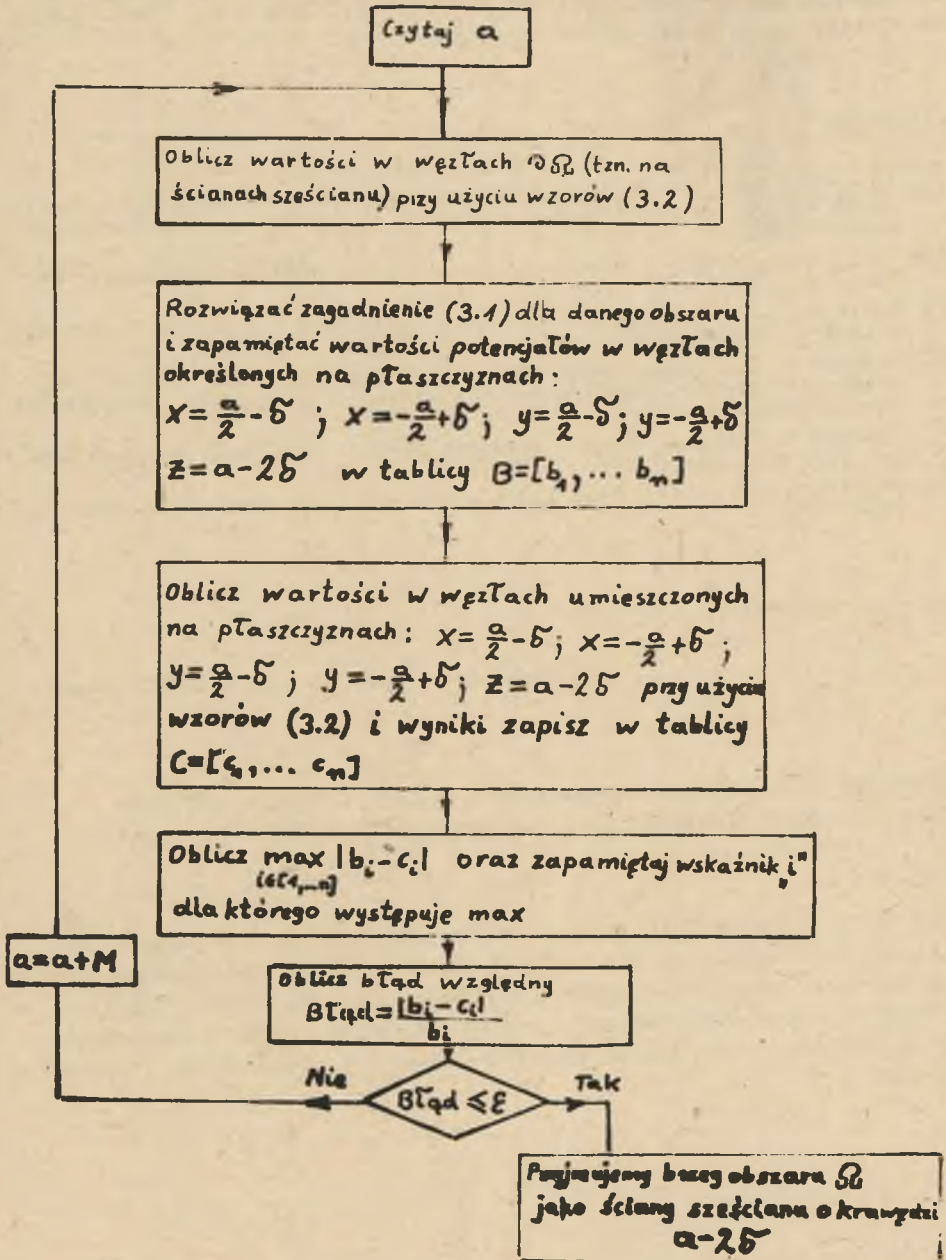 Czytaj a
Oblicz wartości w węzłach ∂Ω (tzn. na
ścianach sześcianu) przy użyciu wzorów (3.2)
Rozwiązać zagadnienie (3.1) dla danego obszaru
i zapamiętać wartości potencjałów w węzłach
określonych na płaszczyznach:
x = a/2 - δ ; x = -a/2 + δ ; y = a/2 - δ ; y = -a/2 + δ
z = a - 2δ w tablicy B=[b₁, ... bₙ]
Oblicz wartości w węzłach umieszczonych
na płaszczyznach: x = a/2 - δ ; x = -a/2 + δ ;
y = a/2 - δ ; y = -a/2 + δ ; z = a - 2δ przy użyciu
wzorów (3.2) i wyniki zapisz w tablicy
C=[c₁, ... cₙ]
Oblicz max |bᵢ - cᵢ| oraz zapamiętaj wskaźnik „i"
i∈[1,...n]
dla którego występuje max
a=a+M
Oblicz błąd względny
Błąd = |bᵢ - cᵢ| / bᵢ
Nie
Błąd ≤ ε
Tak
Przyjmujemy brzeg obszaru Ω
jako ściany sześcianu o krawędzi
a-2δ